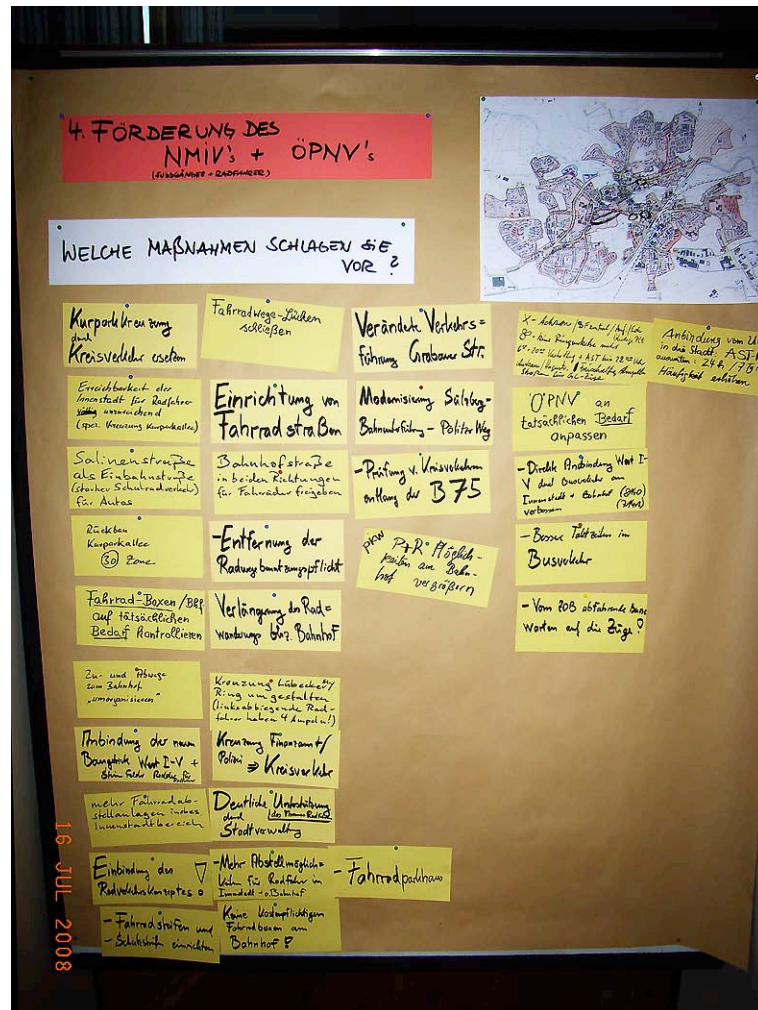 4. FÖRDERUNG DES
NMIV's + ÖPNV's
(FUSSGÄNGER + RADFAHRER)
WELCHE MAßNAHMEN SCHLAGEN SIE
VOR?
Kurparkkreuzung
durch
Kreisverkehr ersetzen
Erreichbarkeit der
Innenstadt für Radfahrer
völlig unzureichend
(spez. Kreuzung Kurparkallee)
Salinenstraße
als Einbahnstraße
(starker Schulradverkehr)
für Autos
Rückbau
Kurparkallee
30 Zone
Fahrrad-Boxen/B&R
auf tatsächlichen
Bedarf kontrollieren
Zu- und Abwege
zum Bahnhof
"umorganisieren"
Anbindung der neuen
Baugebiete West I-V +
mehr Fahrradab-
stellanlagen insbes.
Innenstadtbereich
Einbindung des
Radverkehrskonzeptes!
- Fahrradstreifen und
- Schutzstreifen einrichten
Fahrradwege-Lücken
schließen
Einrichtung von
Fahrradstraßen
Bahnhofstraße
in beiden Richtungen
für Fahrräder freigeben
-Entfernung der
Radwegbenutzungspflicht
Verlängerung des Rad=
wanderwegs bis z. Bahnhof
Kreuzung Lübecker Str/
Ring umgestalten
(linksabbiegende Rad-
fahrer haben 4 Ampeln!)
Kreuzung Finanzamt/
Polizei ⇒ Kreisverkehr
Deutliche Unterstützung
des Themas Radfahren
durch
Stadtverwaltung
-Mehr Abstellmöglich=
keiten für Radfahrer in
Innenstadt + a. Bahnhof
Keine kostenpflichtigen
Fahrradboxen am
Bahnhof!
Verändete Verkehrs=
führung Grabauer Str.
Modernisierung Sülzberg-
Bahnunterführung - Politzer Weg
-Prüfung v. Kreisverkehren
entlang der B75
PKW P+R Möglich-
keiten am Bahn-
hof vergrößern
- Fahrradparkhaus
ÖPNV an
tatsächlichen Bedarf
anpassen
- Direkte Anbindung West I-
V durch Busverkehr an
Innenstadt + Bahnhof
verbessern
- Bessere Taktzeiten im
Busverkehr
- Vom ZOB abfahrende Busse
warten auf die Züge!
in die Stadt: AST-
Häufigkeit erhöhen
16 JUL 2008